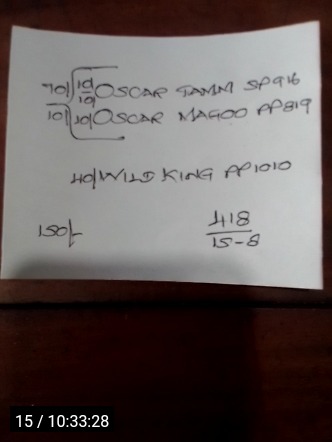 70/ 10/10 OSCAR TAMM SP916
10/ 10/ OSCAR MAGOO PP819
40/ WILD KING PP1010
150/-
418
15-8
15 / 10:33:28